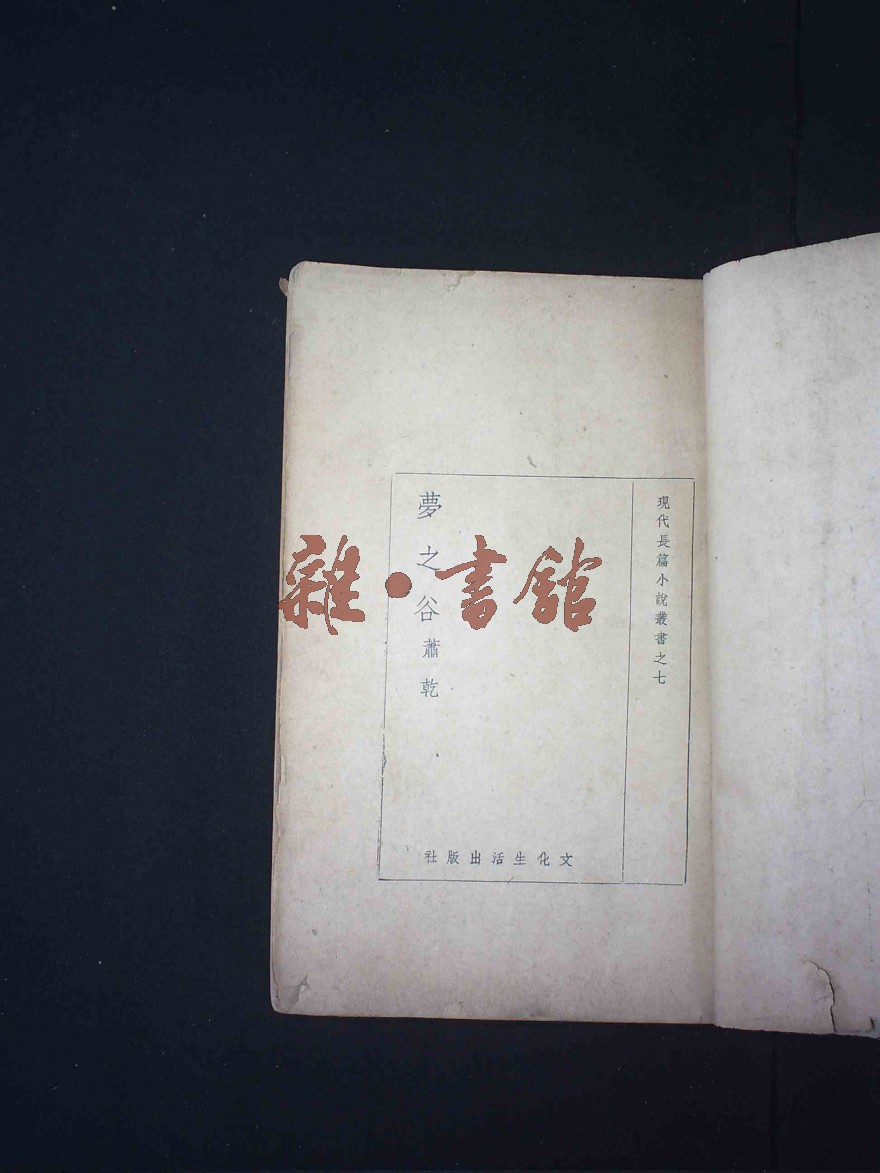 現代長篇小說叢書之七
夢之谷
蕭乾
文化生活出版社
雜·書館